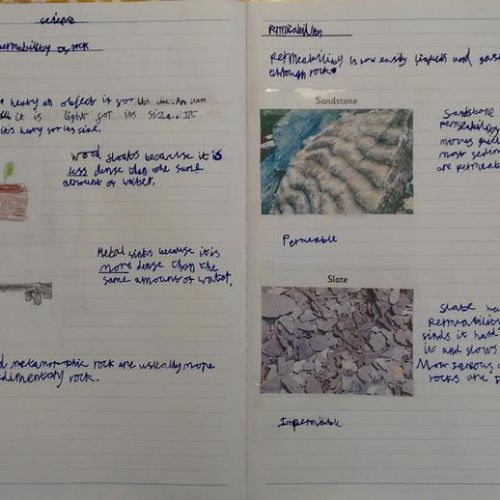 science
permability of rock
heavy an object is for its size. An
it is light for its size. If
its heavy for its size.
Wood floats because it is
less dense than the same
amount of water.
Metal sinks because it is
more dense than the
same amount of water.
metamorphic rock are usually more
sedimentary rock.
Permeability
Permeability is how easily liquids and gas
through rock.
Sandstone
Sandstone
Permeability
moves
most sedim
are permea
Permeable
Slate
Slate ha
Permeability
it hard
it and slows
Most igneous
rocks are
Impermable